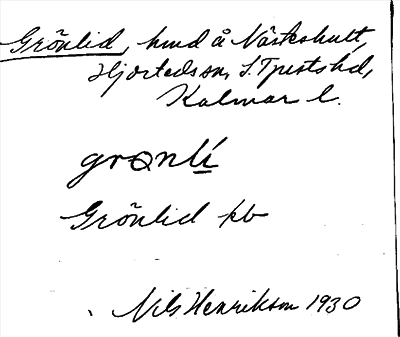 Grönlid, hmd å Näskshult,
Hjorteds sn, S. Tjusts hd,
Kalmar l.
grɔnlí
Grönlid kb
Nils Henrikson 1930